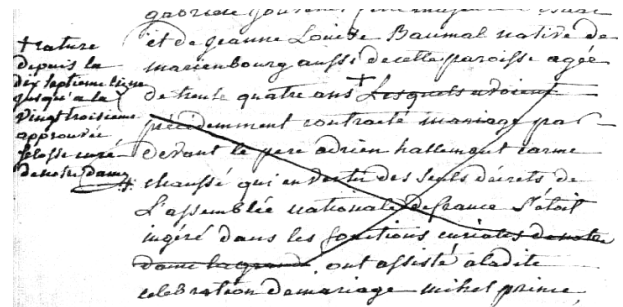 et de jeanne Louise Baumal native de
marienbourg aussi de cette paroisse agée
de trente quatre ans + Lesquels avoient
précédemment contracté mariage par
devant le pere adrien hallement carme
chaussé qui en vertu des seuls décrets de
L'assemblée nationale de france s'étoit
ingéré dans les fonctions curiales de notre
dame la grande. ont assisté a ladite
celebration de mariage michel prince
+ rature
depuis la
dix septieme ligne
jusqu'a la
vingt troisieme
approuvée
curé
de notre Dame